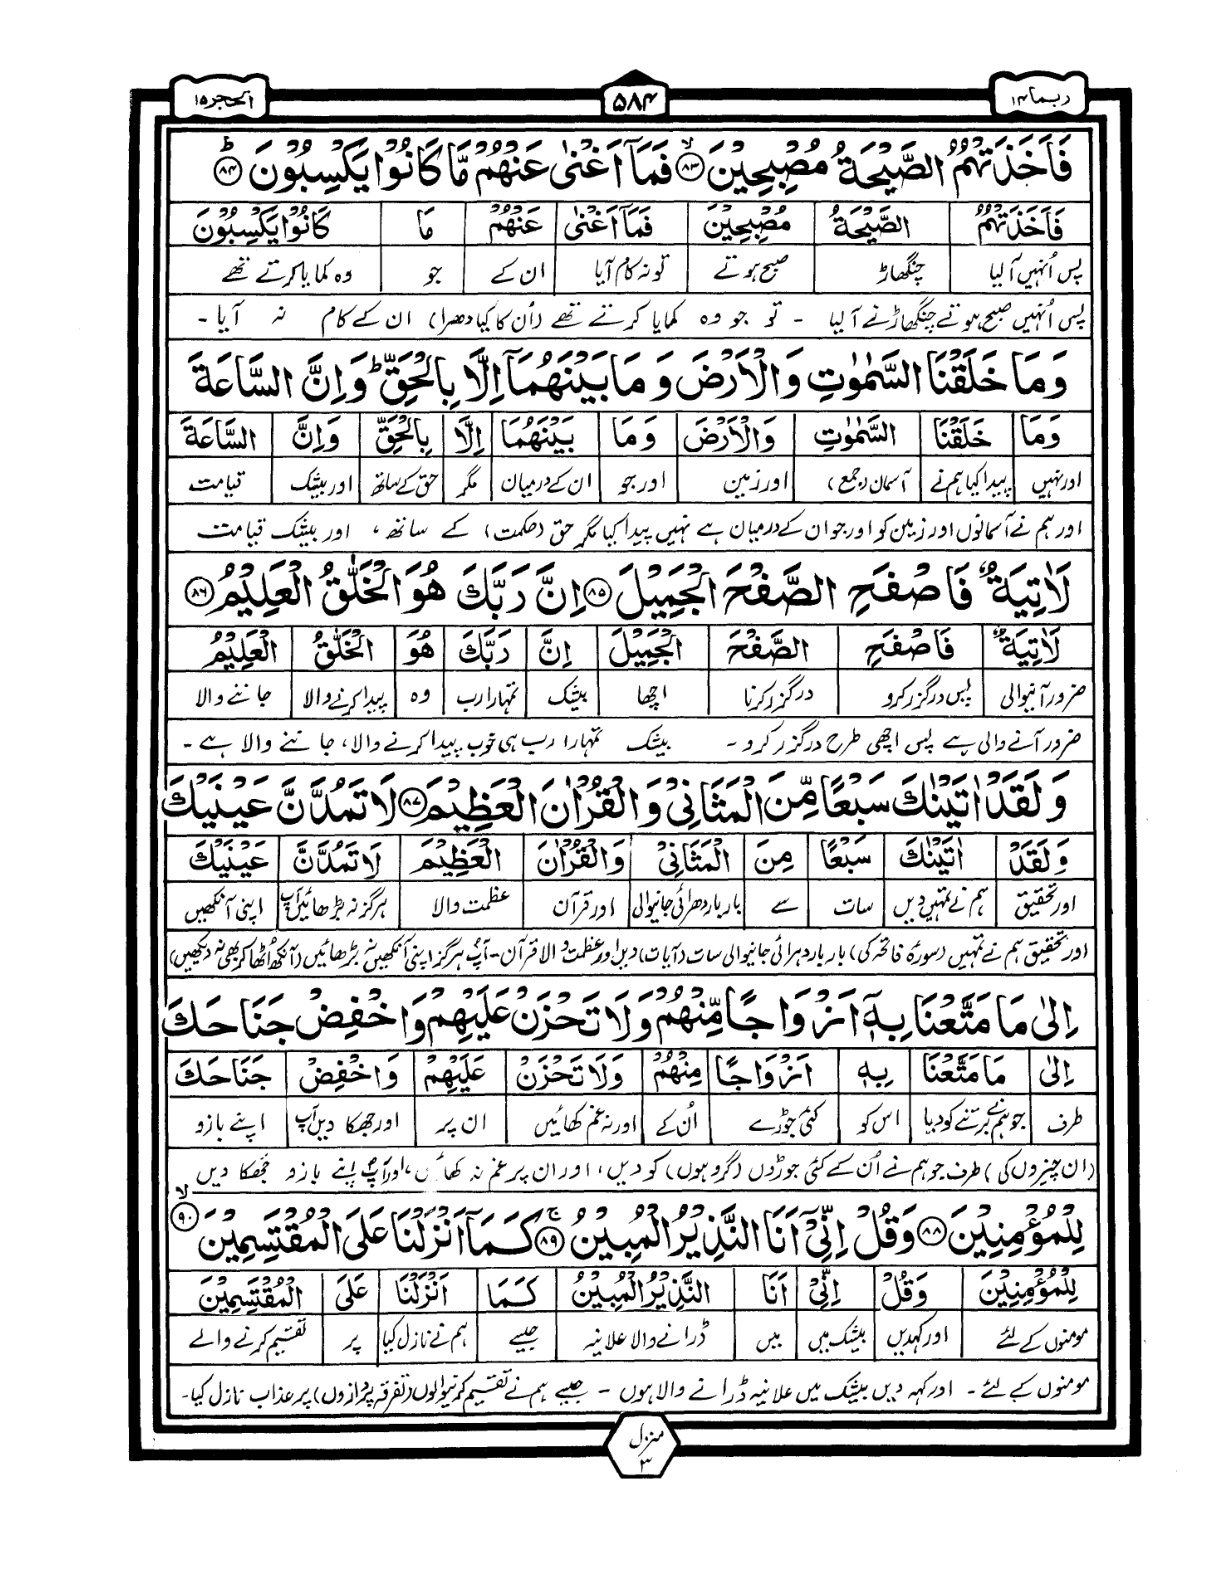 ربما ۱۴
۵۸۴
الحجر ۱۵
فَاَخَذَتْهُمُ الصَّيْحَةُ مُصْبِحِيْنَ ۙ﴿۸۳﴾ فَمَاۤ اَغْنٰى عَنْهُمْ مَّا كَانُوْا يَكْسِبُوْنَ ؕ﴿۸۴﴾
فَاَخَذَتْهُمُ الصَّيْحَةُ مُصْبِحِيْنَ فَمَاۤ اَغْنٰى عَنْهُمْ مَا كَانُوْا يَكْسِبُوْنَ
پس اُنہیں آ لیا چنگھاڑ صبح ہوتے تو نہ کام آیا ان کے جو وہ کمایا کرتے تھے
پس اُنہیں صبح ہوتے چنگھاڑ نے آ لیا - تو جو وہ کمایا کرتے تھے (اُن کا کیا دھرا) ان کے کام نہ آیا -
وَمَا خَلَقْنَا السَّمٰوٰتِ وَالْاَرْضَ وَمَا بَيْنَهُمَاۤ اِلَّا بِالْحَقِّ ؕ وَاِنَّ السَّاعَةَ
وَمَا خَلَقْنَا السَّمٰوٰتِ وَالْاَرْضَ وَمَا بَيْنَهُمَا اِلَّا بِالْحَقِّ وَاِنَّ السَّاعَةَ
اور نہیں پیدا کیا ہم نے آسمان (جمع) اور زمین اور جو ان کے درمیان مگر حق کے ساتھ اور بیشک قیامت
اور ہم نے آسمانوں اور زمین کو اور جو ان کے درمیان ہے نہیں پیدا کیا مگر حق (حکمت) کے ساتھ، اور بیشک قیامت
لَاٰتِيَةٌ فَاصْفَحِ الصَّفْحَ الْجَمِيْلَ ﴿۸۵﴾ اِنَّ رَبَّكَ هُوَ الْخَلّٰقُ الْعَلِيْمُ ﴿۸۶﴾
لَاٰتِيَةٌ فَاصْفَحِ الصَّفْحَ الْجَمِيْلَ اِنَّ رَبَّكَ هُوَ الْخَلّٰقُ الْعَلِيْمُ
ضرور آنیوالی پس درگزر کرو درگزر کرنا اچھا بیشک تمہارا رب وہ پیدا کرنے والا جاننے والا
ضرور آنے والی ہے پس اچھی طرح درگزر کرو - بیشک تمہارا رب ہی خوب پیدا کرنے والا، جاننے والا ہے -
وَلَقَدْ اٰتَيْنٰكَ سَبْعًا مِّنَ الْمَثَانِيْ وَالْقُرْاٰنَ الْعَظِيْمَ ﴿۸۷﴾ لَا تَمُدَّنَّ عَيْنَيْكَ
وَلَقَدْ اٰتَيْنٰكَ سَبْعًا مِنَ الْمَثَانِيْ وَالْقُرْاٰنَ الْعَظِيْمَ لَا تَمُدَّنَّ عَيْنَيْكَ
اور تحقیق ہم نے تمہیں دیں سات سے بار بار دھرائی جانیوالی اور قرآن عظمت والا ہرگز نہ بڑھائیں آپ اپنی آنکھیں
اور تحقیق ہم نے تمہیں (سورۂ فاتحہ کی) بار بار دہرائی جانیوالی سات (آیات) دیں اور عظمت والا قرآن - آپ ہرگز اپنی آنکھیں نہ بڑھائیں (آنکھ اُٹھا کر بھی نہ دیکھیں)
اِلٰى مَا مَتَّعْنَا بِهٖۤ اَزْوَاجًا مِّنْهُمْ وَلَا تَحْزَنْ عَلَيْهِمْ وَاخْفِضْ جَنَاحَكَ
اِلٰى مَا مَتَّعْنَا بِهٖ اَزْوَاجًا مِنْهُمْ وَلَا تَحْزَنْ عَلَيْهِمْ وَاخْفِضْ جَنَاحَكَ
طرف جو ہم نے برتنے کو دیا اس کو کئی جوڑے اُن کے اور نہ غم کھائیں ان پر اور جھکا دیں آپ اپنے بازو
(ان چیزوں کی) طرف جو ہم نے اُن کے کئی جوڑوں (گروہوں) کو دیں، اور ان پر غم نہ کھائیں، اور آپ اپنے بازو جھکا دیں
لِلْمُؤْمِنِيْنَ ﴿۸۸﴾ وَقُلْ اِنِّيْۤ اَنَا النَّذِيْرُ الْمُبِيْنُ ۚ﴿۸۹﴾ كَمَاۤ اَنْزَلْنَا عَلَى الْمُقْتَسِمِيْنَ ۙ﴿۹۰﴾
لِلْمُؤْمِنِيْنَ وَقُلْ اِنِّيْ اَنَا النَّذِيْرُ الْمُبِيْنُ كَمَا اَنْزَلْنَا عَلَى الْمُقْتَسِمِيْنَ
مومنوں کے لئے اور کہدیں بیشک میں میں ڈرانے والا علانیہ جیسے ہم نے نازل کیا پر تقسیم کرنے والے
مومنوں کے لئے - اور کہہ دیں بیشک میں علانیہ ڈرانے والا ہوں - جیسے ہم نے تقسیم کرنیوالوں (تفرقہ پردازوں) پر عذاب نازل کیا -
منزل
۳